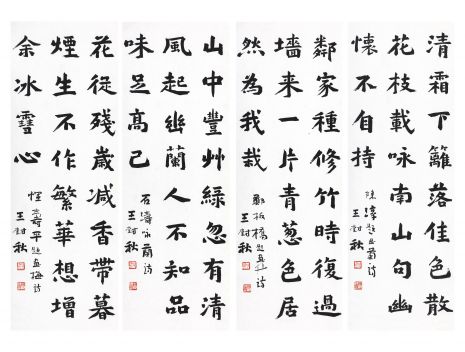 清霜下籬落佳色散
花枝載咏南山句幽
懷不自持
陳淳題畫菊詩
鄰家種修竹時復過
墻來一片青蔥色居
然為我栽
鄭板橋題畫竹詩
山中豐艸綠忽有清
風起幽蘭人不知品
味足高己
石濤咏蘭詩
花從殘歲減香帶暮
煙生不作繁華想增
余冰雪心
惲壽平題畫梅詩